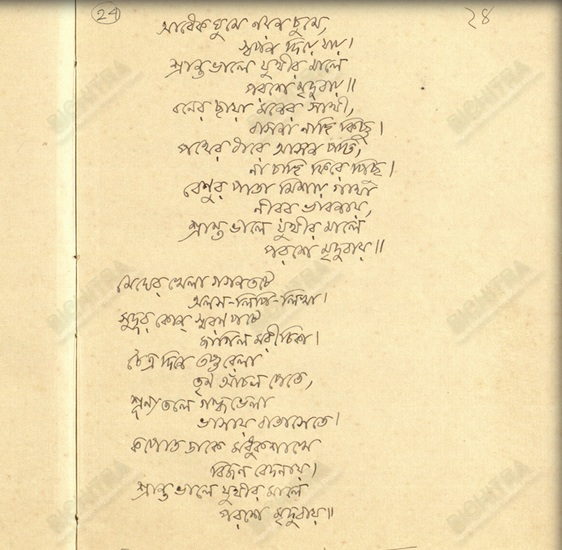 24
২৪
আধেক ঘুমে নয়ন চুমে,
স্বপন দিয়ে যায়।
শ্রান্ত ভালে যূথীর মালে
পরশে মৃদু বায়॥
বনের ছায়া মনের সাথী,
বাসনা নাহি কিছু।
পথের ধারে আসন পাতি,
না চাহি ফিরে পিছু।
বেণুর পাতা মিশায় গাথা
নীরব ভাবনায়,
শ্রান্ত ভালে যূথীর মালে
পরশে মৃদু বায়॥
মেঘের খেলা গগনতটে
অলস-লিপি-লিখা।
সুদূর কোন্ স্মরণপটে
জাগিল মরীচিকা।
চৈত্র দিনে তপ্ত বেলা
তৃণ আঁচল পেতে,
শূন্যতলে গন্ধ ভেলা
ভাসায় বাতাসেতে।
কপোত ডাকে মধুকশাখে
বিজন বেদনায়।
শ্রান্ত ভালে যূথীর মালে
পরশে মৃদু বায়॥
BICHITRA